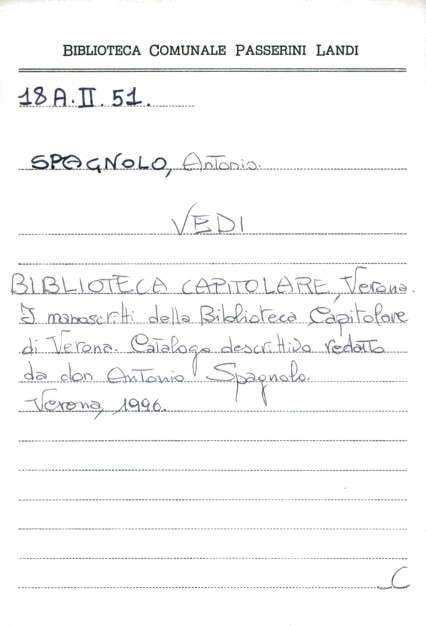 BIBLIOTECA COMUNALE PASSERINI LANDI
18A.II.51.
SPAGNOLO, Antonio.
VEDI
BIBLIOTECA CAPITOLARE, Verona.
I manoscritti della Biblioteca Capitolare
di Verona. Catalogo descrittivo redatto
da don Antonio Spagnolo.
Verona, 1996.
C